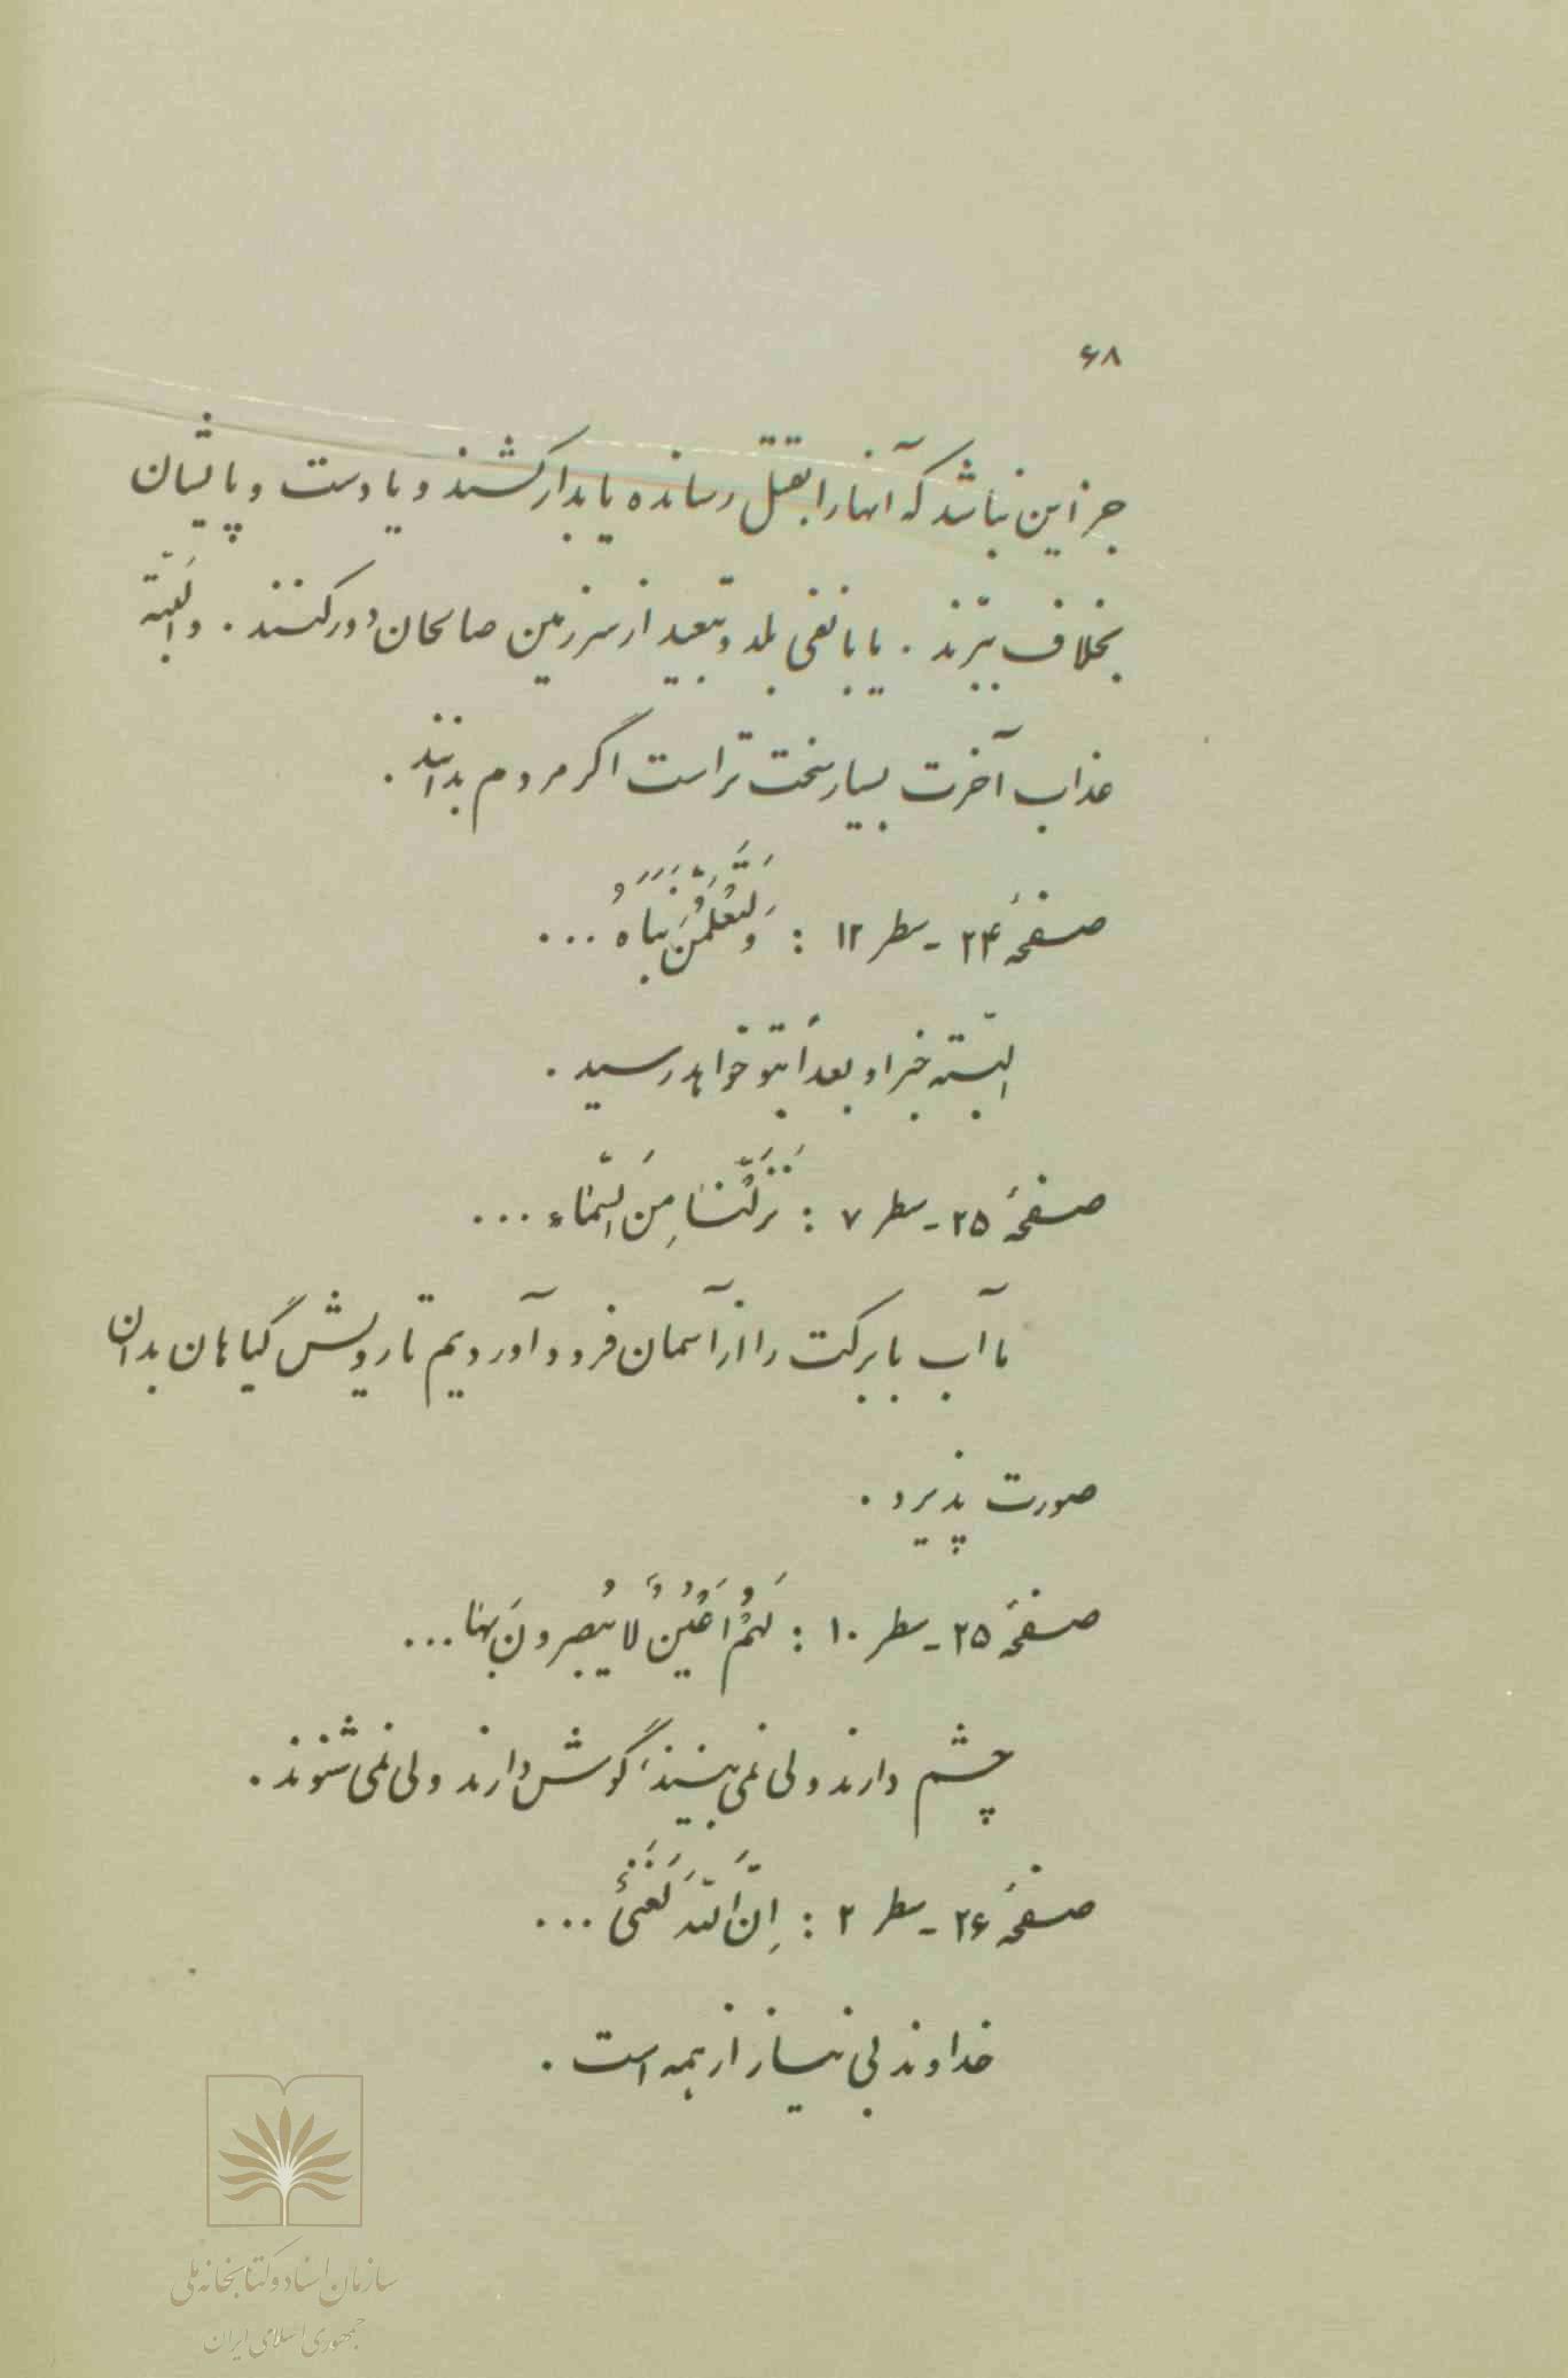 ۶۸
جز این نباشد که آنها را بقتل رسانده یا بدار کشند و یا دست و پایشان
بخلاف ببُرند . یا با نفی بلد و تبعید از سرزمین صالحان دور کنند . و البَتّه
عذاب آخرت بسیار سخت تر است اگر مردم بدانند .
صفحهٔ ۲۴ - سطر ۱۲ : وَلَتَعْلَمُنَّ نَبَاَهُ ...
البتّه خبر او بعداً بتو خواهد رسید .
صفحهٔ ۲۵ - سطر ۷ : نَزَّلْنَا مِنَ السَّمَاءِ ...
ما آب با برکت را از آسمان فرود آوردیم تا رویش گیاهان بدان
صورت پذیرد .
صفحهٔ ۲۵ - سطر ۱۰ : لَهُمْ اَعْيُنٌ لا يُبْصِرُونَ بِهَا ...
چشم دارند ولی نمی بینند، گوش دارند ولی نمی شنوند .
صفحهٔ ۲۶ - سطر ۲ : اِنَّ اللّهَ لَغَنِىٌّ ...
خداوند بی نیاز از همه است .
سازمان اسناد و کتابخانه ملی
جمهوری اسلامی ایران